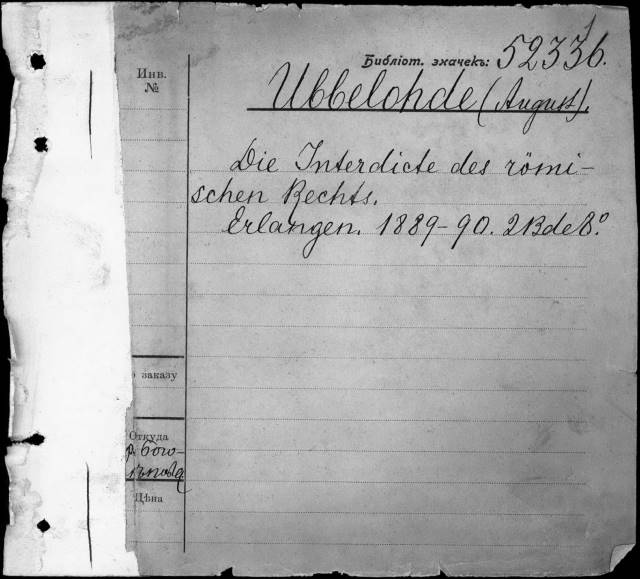 Инв.
№
Библіот. значекъ: 52336.
Ubbelohde (August).
Die Interdicte des römi-
schen Rechts.
Erlangen. 1889-90. 2 Bde 8.°
заказу
Откуда
Цѣна